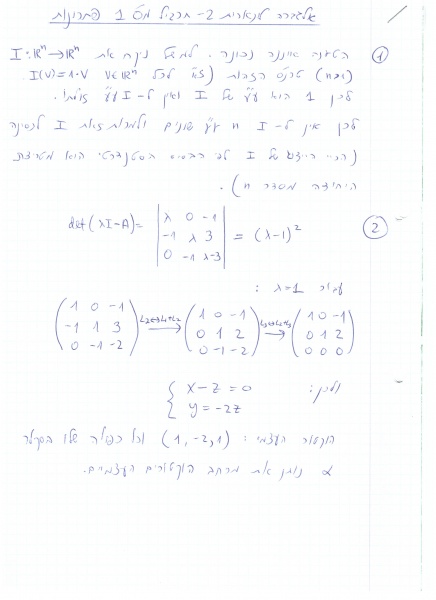 אלגברה לינארית 2 - תרגיל מס 1 פתרונות
① הטענה איננה נכונה. למשל ניקח את I:ℝⁿ→ℝⁿ
טרנס הזהות (אז לכל v∈ℝⁿ I(v)=1·v).
לכן 1 הוא ע"ע של I ואין ל-I ע"ע
לכן אין ל-I n ע"ע שונים ולמרות זאת I לכסינה
(כי הייצוג של I לפי הבסיס הסטנדרטי הוא מטריצת
היחידה מסדר n).
② det(λI-A) = |λ 0 -1; -1 λ 3; 0 -1 λ-3| = (λ-1)²
עבור λ=1:
(1 0 -1; -1 1 3; 0 -1 -2) → (1 0 -1; 0 1 2; 0 -1 -2) → (1 0 -1; 0 1 2; 0 0 0)
ולכן: { x-z=0
y=-2z
הוקטור העצמי: (1,-2,1) וכל כפולה שלו בסקלר
α נותן את מרחב הוקטורים העצמיים.